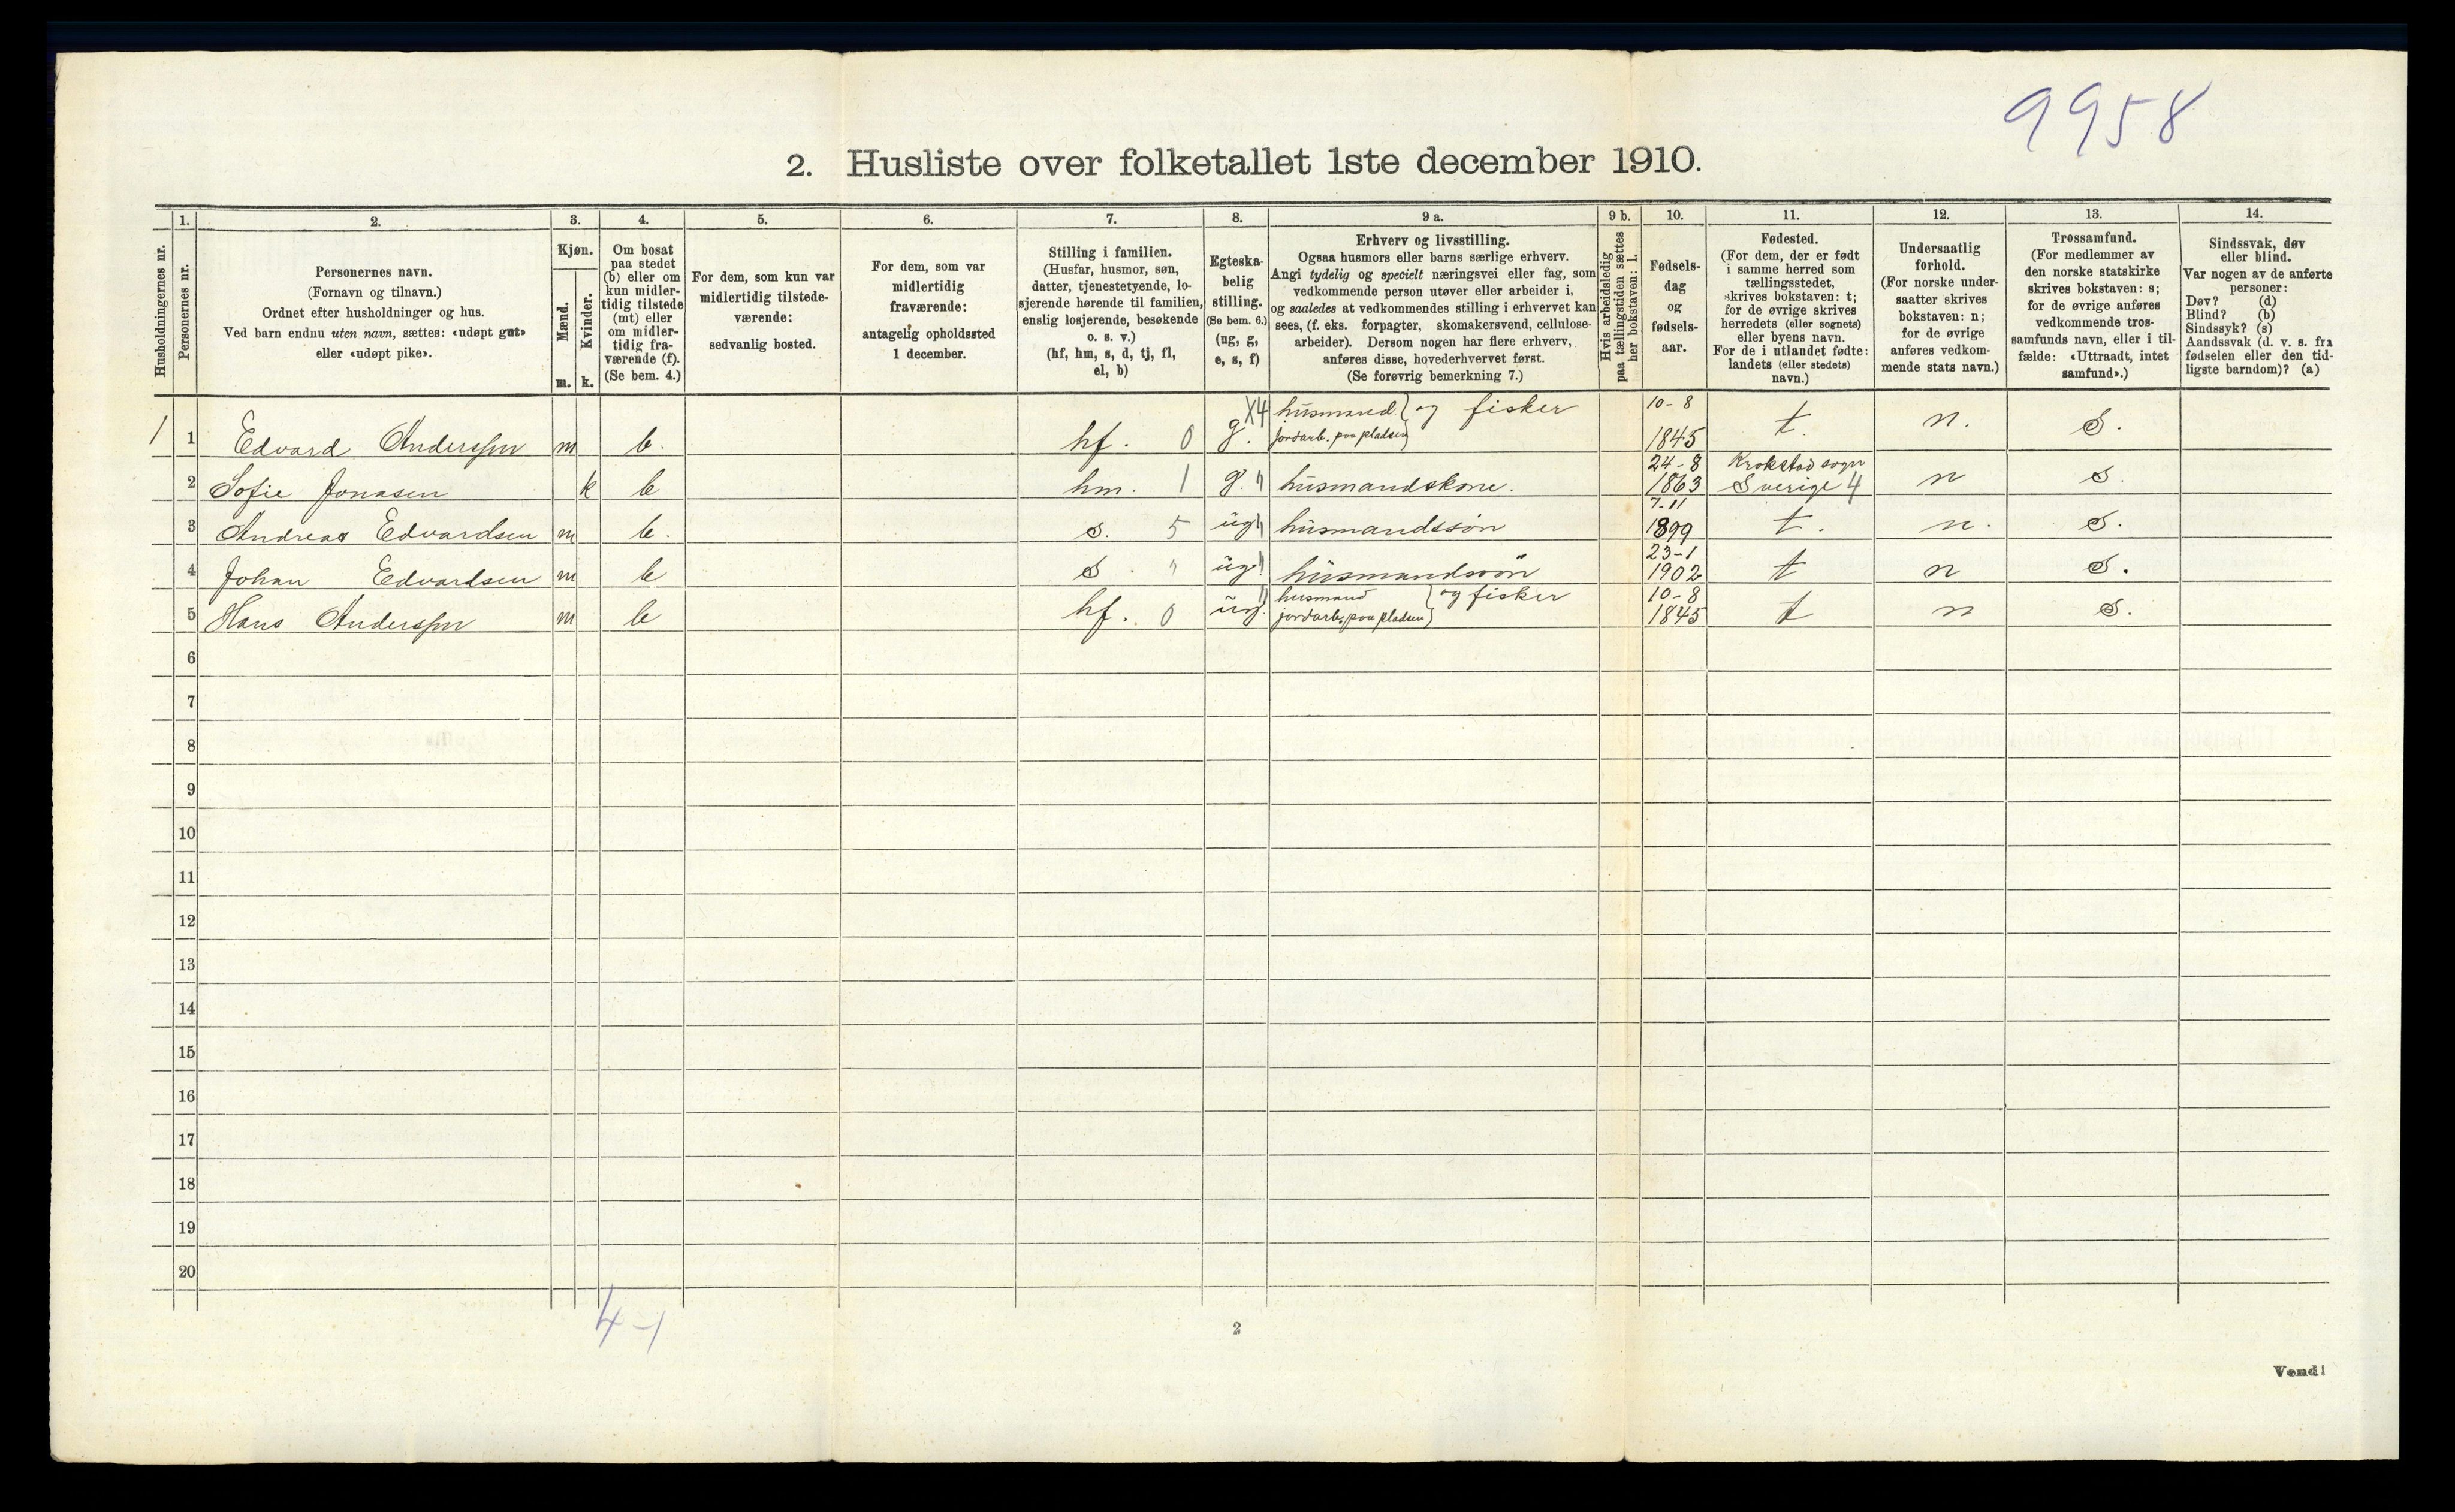 9958
2. Husliste over folketallet 1ste december 1910.
Husholdningernes nr.
1.
Personernes nr.
2.
Personernes navn.
(Fornavn og tilnavn.)
Ordnet efter husholdninger og hus.
Ved barn endnu uten navn, sættes: «udøpt gut»
eller «udøpt pike».
3.
Kjøn.
Mænd.
Kvinder.
m. k.
4.
Om bosat
paa stedet
(b) eller om
kun midler-
tidig tilstede
(mt) eller
om midler-
tidig fra-
værende (f).
(Se bem. 4.)
5.
For dem, som kun var
midlertidig tilstede-
værende:
sedvanlig bosted.
6.
For dem, som var
midlertidig
fraværende:
antagelig opholdssted
1 december.
7.
Stilling i familien.
(Husfar, husmor, søn,
datter, tjenestetyende, lo-
sjerende hørende til familien,
enslig losjerende, besøkende
o. s. v.)
(hf, hm, s, d, tj, fl,
el, b)
8.
Egteska-
belig
stilling.
(Se bem. 6.)
(ug, g,
e, s, f)
9 a.
Erhverv og livsstilling.
Ogsaa husmors eller barns særlige erhverv.
Angi tydelig og specielt næringsvei eller fag, som
vedkommende person utøver eller arbeider i,
og saaledes at vedkommendes stilling i erhvervet kan
sees, (f. eks. forpagter, skomakersvend, cellulose-
arbeider). Dersom nogen har flere erhverv,
anføres disse, hovederhvervet først.
(Se forøvrig bemerkning 7.)
9 b.
Hvis arbeidsledig
paa tællingstiden sættes
her bokstaven: l.
10.
Fødsels-
dag
og
fødsels-
aar.
11.
Fødested.
(For dem, der er født
i samme herred som
tællingsstedet,
skrives bokstaven: t;
for de øvrige skrives
herredets (eller sognets)
eller byens navn.
For de i utlandet fødte:
landets (eller stedets)
navn.)
12.
Undersaatlig
forhold.
(For norske under-
saatter skrives
bokstaven: n;
for de øvrige
anføres vedkom-
mende stats navn.)
13.
Trossamfund.
(For medlemmer av
den norske statskirke
skrives bokstaven: s;
for de øvrige anføres
vedkommende tros-
samfunds navn, eller i til-
fælde: «Uttraadt, intet
samfund».)
14.
Sindssvak, døv
eller blind.
Var nogen av de anførte
personer:
Døv? (d)
Blind? (b)
Sindssyk? (s)
Aandssvak (d. v. s. fra
fødselen eller den tid-
ligste barndom)? (a)
1 1 Edvard Anderssen m b. hf. 0 g. X4 husmand } og fisker jordarb. paa pladsen 10-8 1845 t. n. S.
2 Sofie Jonasen k b hm. 1 g. " husmandskone. 24-8 1863 Krokstad sogn Sverige 4 n S.
3 Andreas Edvardsen m b. s. 5 ug " husmandssön 7-11 1899 t. n. S.
4 Johan Edvardsen m b s. " ug " husmandssön 23-1 1902 t n S.
5 Hans Anderssen m b hf. 0 ug. " husmand } og fisker jordarb. paa pladsen 10-8 1845 t n S.
6
7
8
9
10
11
12
13
14
15
16
17
18
19
20
4-1
2
Vend!